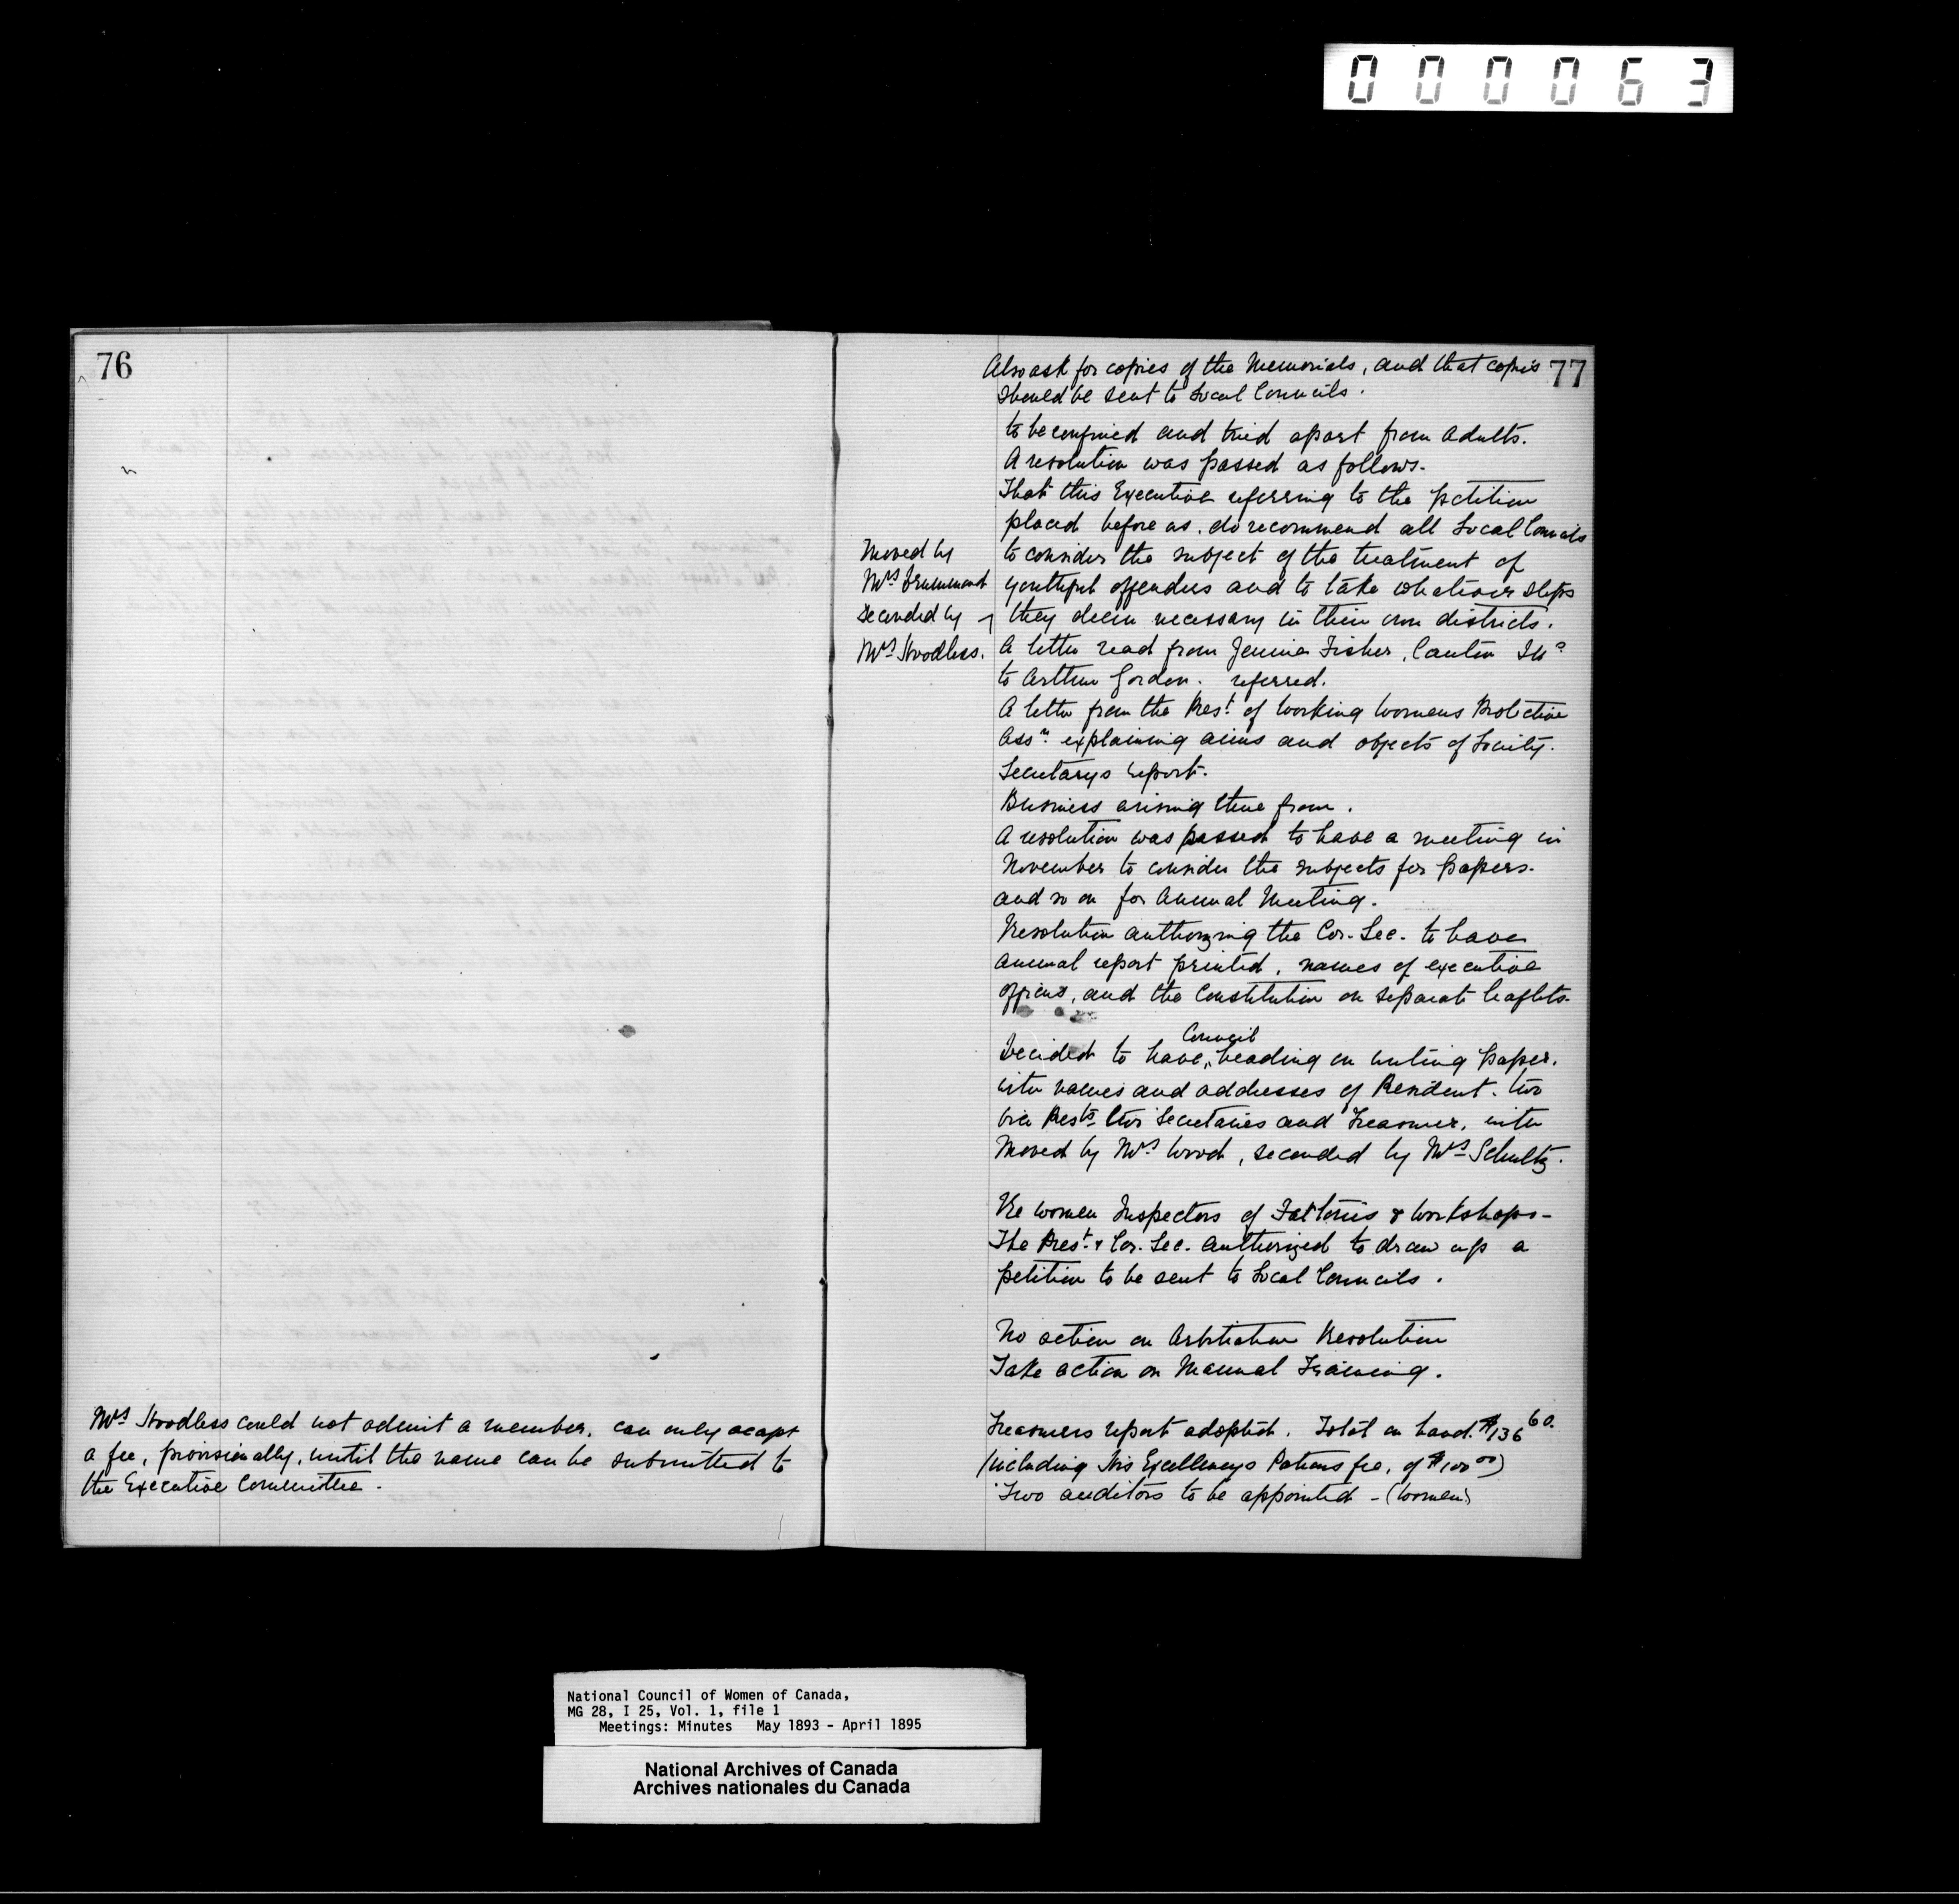 000063
76
Mrs Hoodless could not admit a member, can only accept
a fee, provisionally, until the name can be submitted to
the Executive Committee.
77
Also ask for copies of the Memorials, and that copies
should be sent to Local Councils.
to be confined and tried apart from adults.
A resolution was passed as follows.
That this Executive referring to the petition
placed before us, do recommend all Local Councils
to consider the subject of the treatment of
youthful offenders and to take whatever steps
they deem necessary in their own districts.
Moved by
Mrs Drummond
Seconded by
Mrs Hoodless.
A letter read from Fisher, Canton
to Arthur Gordon. referred.
A letter from the Prest. of Working Womens Protective
Assn. explaining aims and objects of Society.
Secretarys report.
Business arising there from.
A resolution was passed to have a meeting in
November to consider the subjects for papers.
and so on for Annual Meeting.
Resolution authorizing the Cor. Sec. to have
annual report printed, names of executive
officers, and the Constitution on separate leaflets.
Decided to have Council heading on writing paper.
with names and addresses of President. two
vice Prests. two Secretaries and Treasurer, with
Moved by Mrs. Wood, seconded by Mrs Schultz.
Re women Inspectors of Factories & Workshops—
The Prest. & Cor. Sec. authorized to draw up a
petition to be sent to Local Councils.
No action on Arbitration Resolution
Take action on Manual Training.
Treasurers report adopted. Total on hand. $136 60.
(including His Excellencys Patrons fee, of $100 00)
Two auditors to be appointed - (women)
National Council of Women of Canada,
MG 28, I 25, Vol. 1, file 1
Meetings: Minutes May 1893 - April 1895
National Archives of Canada
Archives nationales du Canada